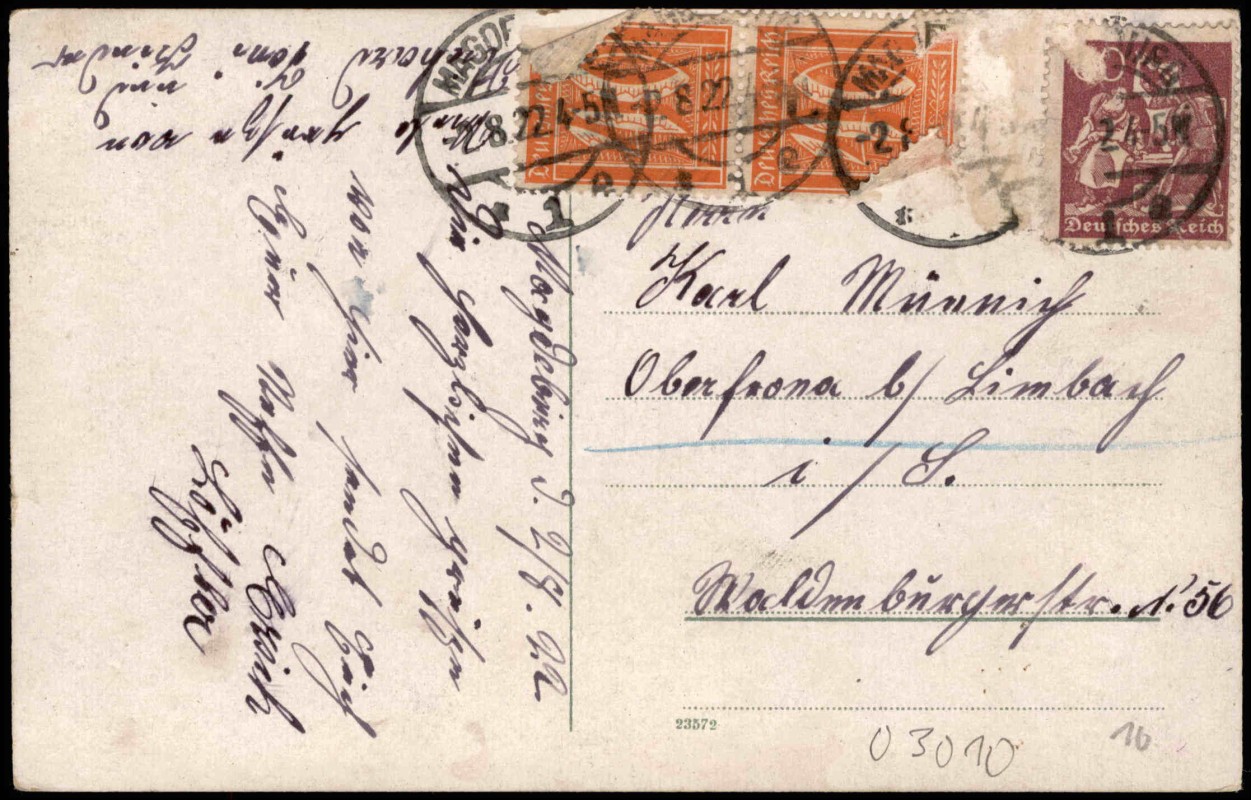 Magdeburg d. 2/8. 22
Die herzlichsten Grüßen
von hier sendet Euch
Euer Neffe Erich
Löffler
Grüße von
und
MAGDE
8.22 4-5N
8.22 4
-2.8
2.4-5N
Deutsches Reich
Deutsches Reich
Deutsches Reich
Herrn
Karl Münnich
Oberfrona b/ Limbach
i/S.
Waldenburgerstr. N. 56
23572
03010
16